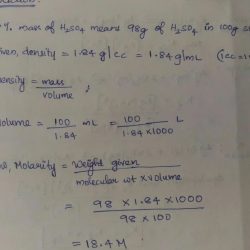 % mass of H2SO4 means 98g of H2SO4 in 100g
iven, density = 1.84 g/cc = 1.84 g/mL (1cc = 1
ensity = mass / volume ;
olume = 100 / 1.84 mL = 100 / 1.84 × 1000 L
Molarity = Weight given / molecular wt × volume
= 98 × 1.84 × 1000 / 98 × 100
= 18.4 M